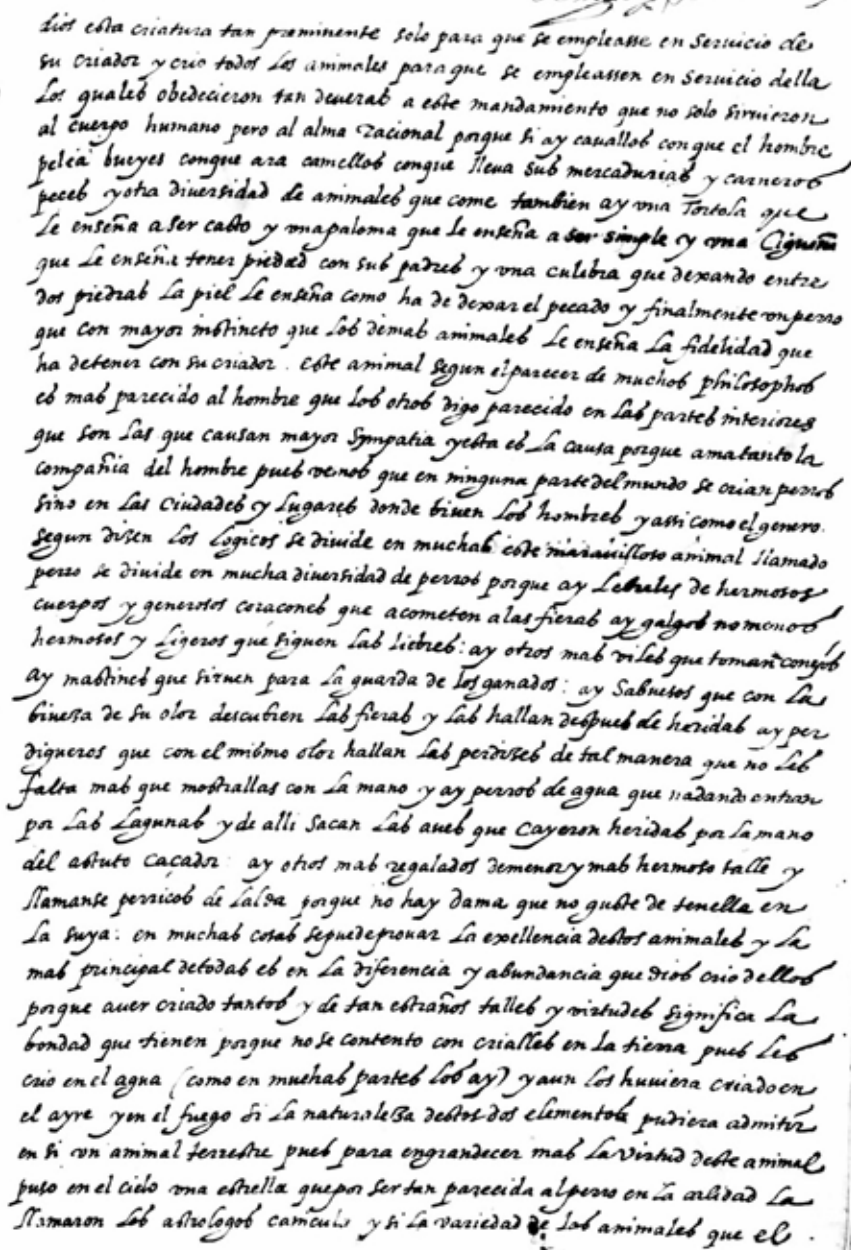 dios esta criatura tan preminente solo para que se empleasse en servicio de
su criador y crio todos los animales para que se empleassen en servicio della
los quales obedecieron tan deveras a este mandamiento que no solo sirvieron
al cuerpo humano pero al alma racional porque si ay cavallos con que el hombre
pelea bueyes conque ara camellos conque lleva sus mercadurias y carneros
peces y otra diversidad de animales que come tambien ay una Tortola que
le enseña a ser casto y una paloma que le enseña a ser simple y una Cigueña
que le enseña tener piedad con sus padres y una culebra que dexando entre
dos piedras la piel le enseña como ha de dexar el pecado y finalmente un perro
que con mayor instincto que los demas animales le enseña la fidelidad que
ha de tener con su criador. este animal segun el parecer de muchos philosophos
es mas parecido al hombre que los otros digo parecido en las partes interiores
que son las que causan mayor sympatia y esta es la causa porque ama tanto la
compañia del hombre pues vemos que en ninguna parte del mundo se crian perros
sino en las Ciudades y lugares donde biuen los hombres y assi como el genero
segun dizen los logicos se divide en muchas este maravilloso animal llamado
perro se divide en mucha diversidad de perros porque ay lebreles de hermosos
cuerpos y generosos coraçones que acometen a las fieras ay galgos no menos
hermosos y ligeros que siguen las liebres: ay otros mas viles que toman conejos
ay mastines que sirven para la guarda de los ganados: ay sabuesos que con la
biueza de su olor descubren las fieras y las hallan despues de heridas ay per
digueros que con el mismo olor hallan las perdizes de tal manera que no les
falta mas que mostrallas con la mano y ay perros de agua que nadando entran
por las lagunas y de alli sacan las aues que cayeron heridas por la mano
del astuto caçador: ay otros mas regalados de menor y mas hermoso talle y
llamanse perricos de falda porque no hay dama que no guste de tenella en
la suya: en muchas cosas se puede provar la exellencia destos animales y la
mas principal de todas es en la diferencia y abundancia que dios crio dellos
porque aver criado tantos y de tan estraños talles y virtudes significa la
bondad que tienen porque no se contento con criallos en la tierra pues les
crio en el agua (como en muchas partes los ay) y aun los huuiera criado en
el ayre y en el fuego si la naturaleza destos dos elementos pudiera admitir
en si un animal terrestre pues para engrandecer mas la virtud deste animal
puso en el cielo una estrella que por ser tan parecida al perro en la calidad la
llamaron los astrologos canicula y si la variedad de los animales que el